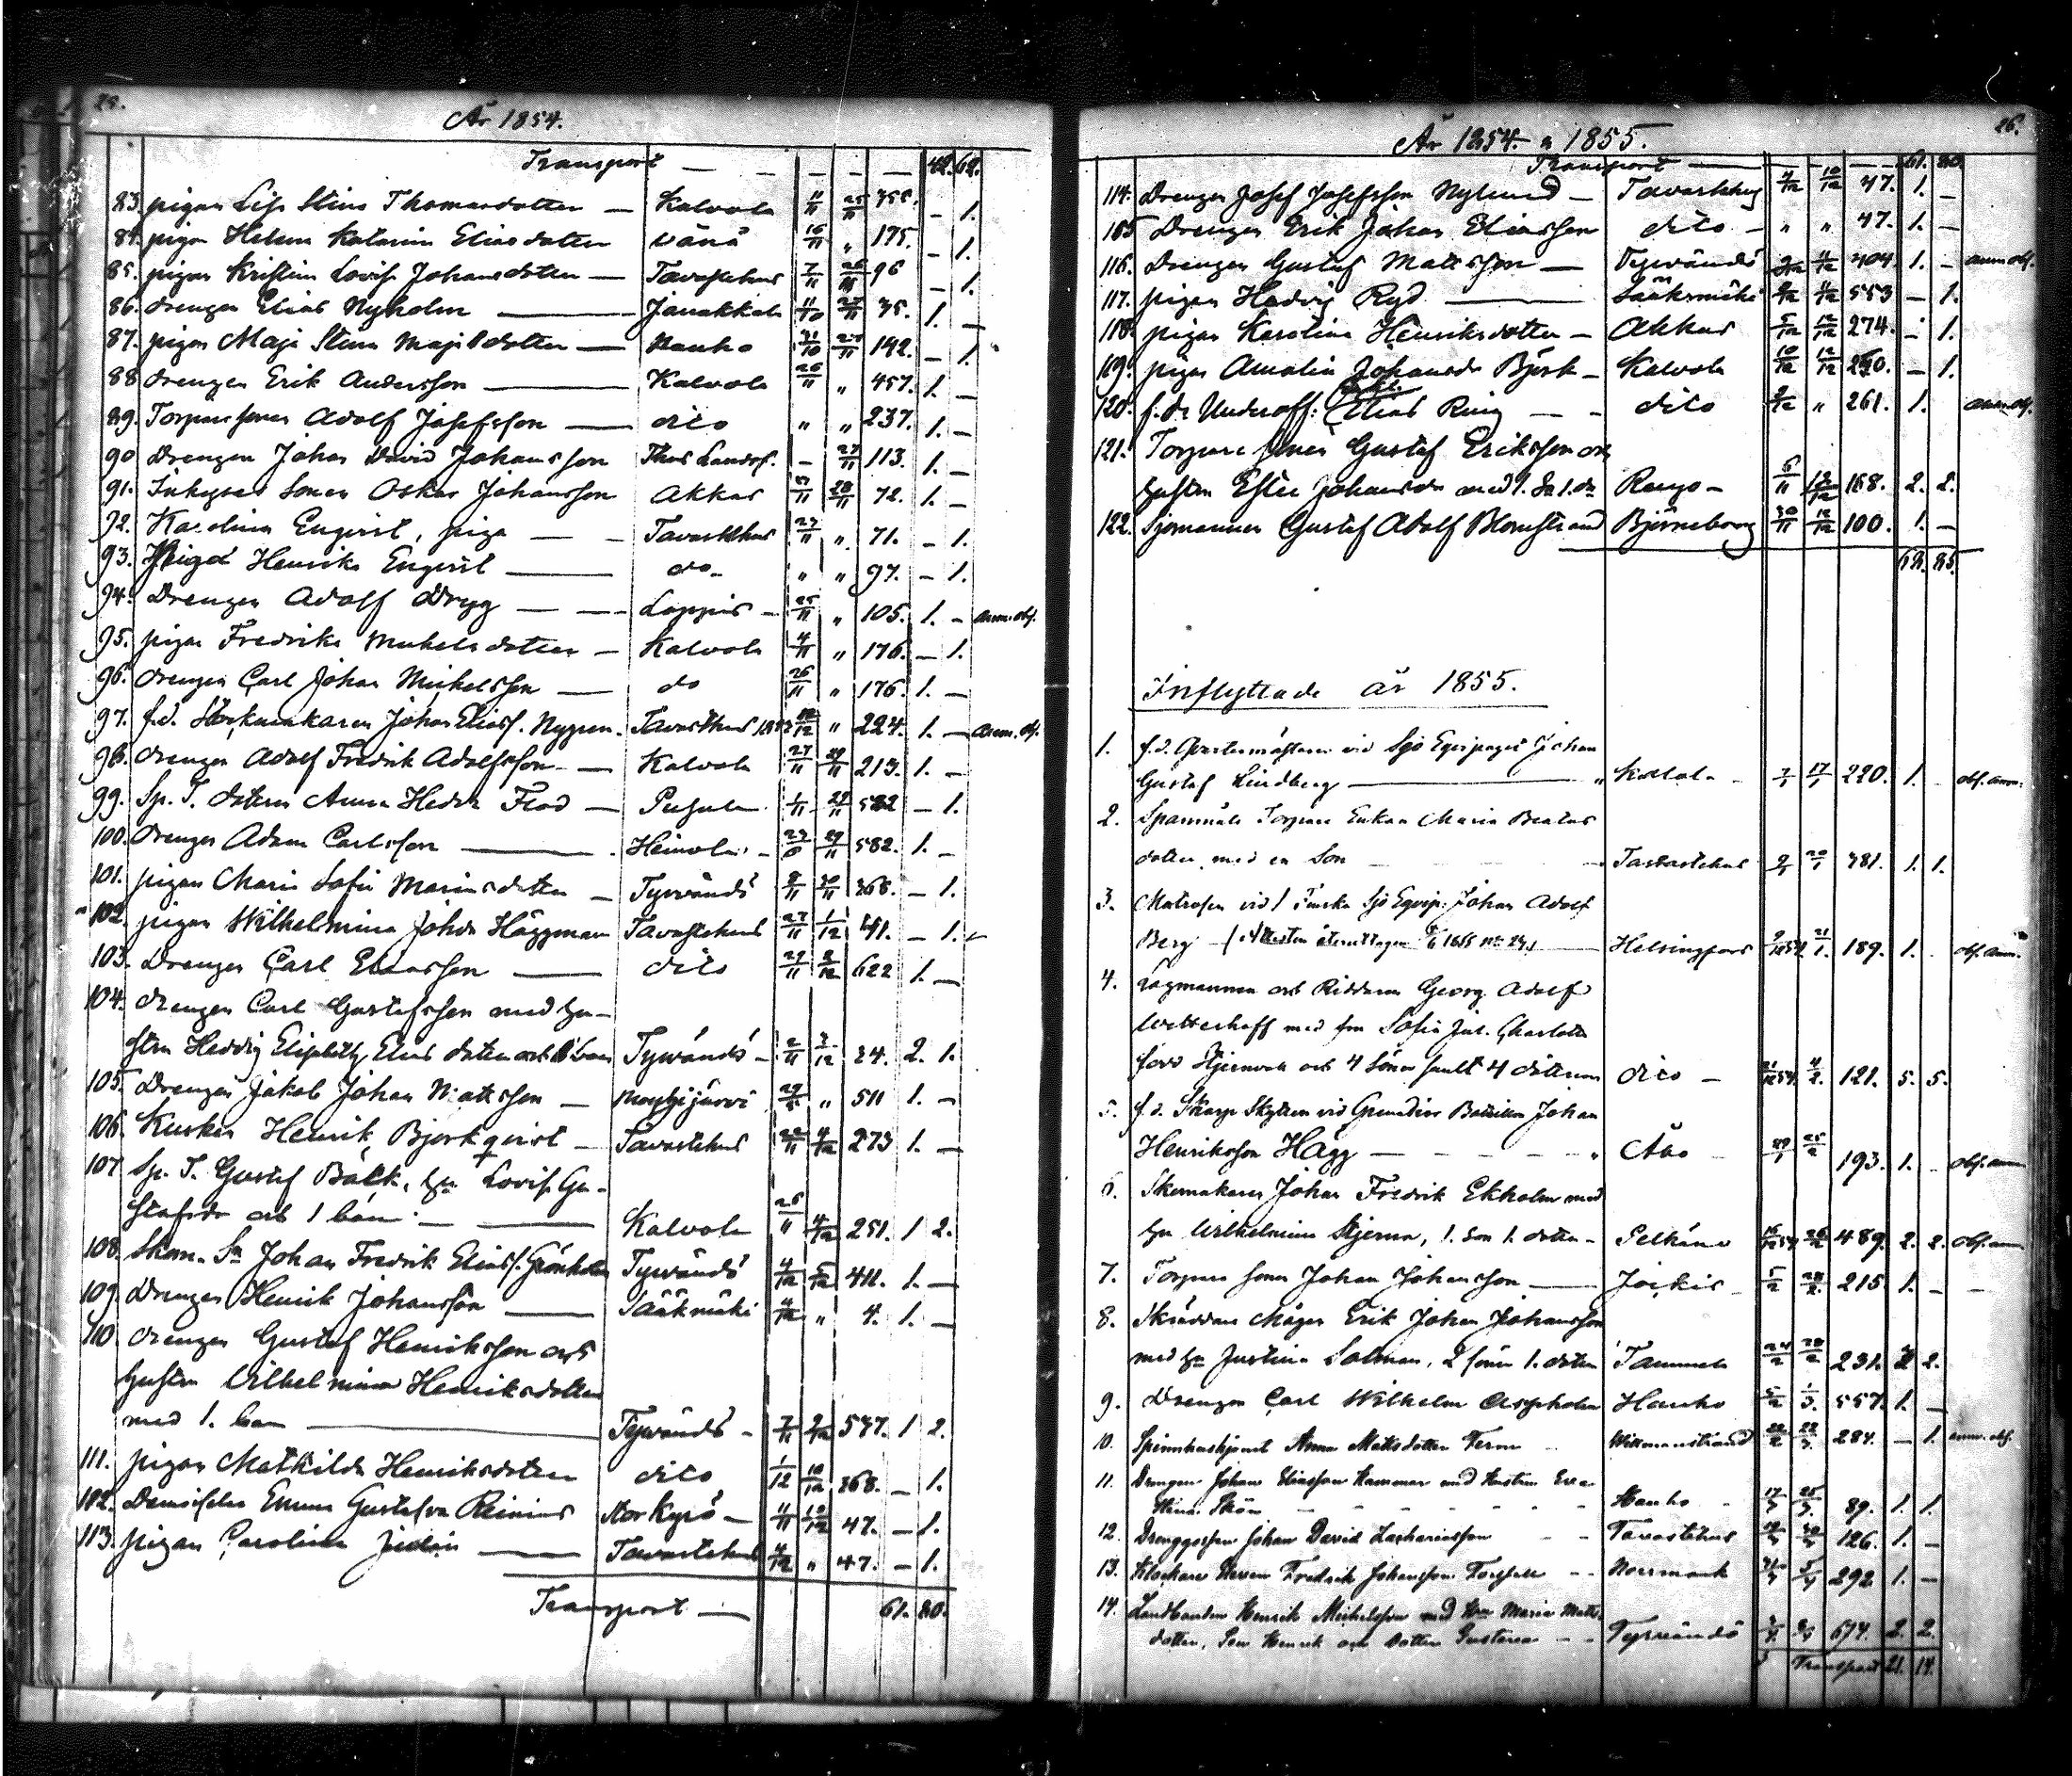 25.
År 1854.
Transport — — — — — 42. 62.
83. pigan Lisa Stina Thomasdotter — Kalvola 11/11 25/11 355. — 1.
84. pigan Helena Katarina Eliasdotter Vånå 16/11 " 175. — 1.
85. pigan Kristina Lovisa Johansdotter — Tavastehus 7/11 26/11 96 — 1.
86. drengen Elias Nyholm — Janakkala 11/10 27/11 35. 1. —
87. pigan Maja Stina Majasdotter — Hauho 31/10 27/11 142. — 1.
88 drengen Erik Andersson — Kalvola 26/11 " 457. 1. —
89. Torparesonen Adolf Josefsson — dito " " 237. 1. —
90 Drengen Johan David Johansson Thus Landsf. — 27/11 113. 1. —
91. Inhyses Sonen Oskar Johansson Akkas 27/11 28/11 72. 1. —
92. Karolina Engvist, piga — Tavastehus 27/11 " 71. — 1.
93. Pigan Henrika Engvist — do " " 97. — 1.
94. Drengen Adolf Drygg — — Loppis — 25/11 " 105. 1. — anm. obs.
95. pigan Fredrika Mickelsdotter — Kalvola 4/11 " 176. — 1.
96. drengen Carl Johan Mickelsson — do 26/11 " 176. 1. —
97. f.d. Johan Eliass. Nygren. Tavasthus " 224. 1. — anm. obs.
98. drengen Adolf Fredrik Adolfsson — Kalvola 27/11 29/11 213. 1. —
99. Sp. T. dottern Anna Hedda Flod — Pusula 1/11 29/11 582 — 1.
100. drengen Adam Carlsson — Heinola — 29/11 582. 1. —
101. pigan Maria Sofia Mariasdotter — Tyrvändö 8/11 30/11 368. — 1.
102. pigan Wilhelmina Johsdr Häggman Tavastehus 27/11 1/12 41. — 1.
103. Drengen Carl Eliasson — dito 29/11 2/12 622 1. —
104. drengen Carl Gustafsson med hu-
stru Hedvig Elisabeth Elias dotter och 1 barn Tyrvändö — 2/11 3/12 24. 2. 1.
105. Drengen Jakob Johan Mattsson — Mouhijärvi " 511 1. —
106. Kusken Henrik Björkqvist — Tavastehus 22/11 4/12 273 1. —
107 Sp. T. Gustaf Bålk, hu Lovisa Gu-
stafsdr och 1 barn — Kalvola 26/11 4/12 251. 1 2.
108. Skom. Sn Johan Fredrik Eliass. Grönholm Tyrvändö 4/12 5/12 411. 1. —
109. Drengen Henrik Johansson — Sääksmäki 4/12 " 4. 1. —
110 drengen Gustaf Henriksson och
hustru Wilhelmina Henriksdotter
med 1. barn — Tyrvändö — 7/11 547. 1 2.
111. pigan Mathilda Henriksdotter dito 1/12 10/12 368. — 1.
112. Demoiselle Emma Gustafva Reinius Storkyrö — 11/11 10/12 47. — 1.
113. pigan Carolina — Tavastehus 4/12 " 47. — 1.
Transport — 61. 80.
26.
År 1854. o 1855.
Transport — 61. 80.
114. Drengen Josef Josefsson Nylund — Tavastehus 4/12 10/12 47. 1. —
115 Drengen Erik Johan Eliasson dito — " " 47. 1. —
116. Drengen Gustaf Mattsson — Tyrvändö 11/12 404. 1. — anm. obs.
117. pigan Hedvig Ryd — Sääksmäki 9/12 11/12 553 — 1.
118. pigan Karolina Henriksdotter — Akkas 5/12 12/12 274. — 1.
119. pigan Amalia Johansdr Björk — Kalvola 10/12 12/12 260. — 1.
120. f.d. Underoff: Elias Ring — — dito 9/12 " 261. 1. anm. obs.
121. Torpare sonen Gustaf Eriksson och
hustru Ester Johansdr med 1. Sn 1. dr Rengo — 6/11 12/12 168. 2. 2.
122. Sjömannen Gustaf Adolf Blomstrand Björneborg 30/11 12/12 100. 1. —
68. 85.
Inflyttade år 1855.
1. f.d. Qvartermästaren vid Sjö Eqvipaget Johan
Gustaf Lindberg — " 17/1 220. 1. obs. anm.
2. Spanmåls Torpare Enkan Maria Beatas
dotter, med en Son — Tavastehus 20/1 381. 1. 1.
3. Matrosen vid 1 Finska Sjö Eqvip: Johan Adolf
Berg — (Attesten återuttagen 1855 — Helsingfors 21/1. 189. 1. obs. anm.
4. Lagmannen och Riddaren Georg Adolf
Wetterhoff med fru Sofia Jul. Charlotta
född Stjernvall och 4 Söner samt 4 döttrar dito — 4/2. 121. 5. 5.
5. f.d. Skarp Skytten vid Grenadier Bataillon Johan
Henriksson Hägg — — — Åbo 25/2 193. 1. obs. anm.
6. Skomakaren Johan Fredrik Ekholm med
hu Wilhelmina Stjerna, 1. son 1. dotter — Pelkäne 26/2 489. 2. 2. obs. anm.
7. Torpare sonen Johan Johansson — Jockis 5/2 28/2. 215. 1. —
8. Skräddare Mågen Erik Johan Johansson
med hu Justina Salman, 2 söner 1. dotter Tammela 24/2 28/2 231. 2.
9. Drengen Carl Wilhelm Aspholm Hauho 5/2 1/3. 557. 1. —
10. Spinnhushjonet Anna Mattsdotter Term — Willmanstrand 284. — 1. anm. obs.
11. Drengen Johan Eliasson Hammar med Hustru Eva
Stina Skön — — Hauho 17/3 25/3. 89. 1. 1.
12. Drenggossen Johan David Zachariasson — Tavastehus 30/3 126. 1. —
13. Klockare Sonen Fredrik Johansson Forssell — Norrmark 5/4 292 1. —
14. Landbonden Henrik Mickelsson med Hu Maria Matts
dotter, Son Henrik och Dotter Gustava — — Tyrvändö 614. 2. 2.
Transport 21. 14.